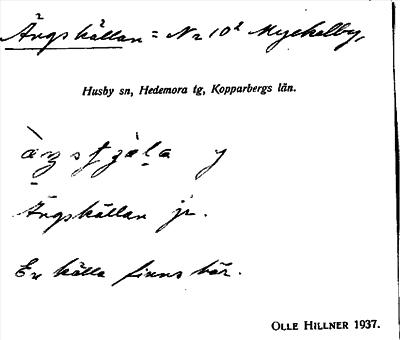 Ängskällan = No 10² Myckelby,
Husby sn, Hedemora tg, Kopparbergs län.
Ängskällan jr.
En källa finns här.
OLLE HILLNER 1937.